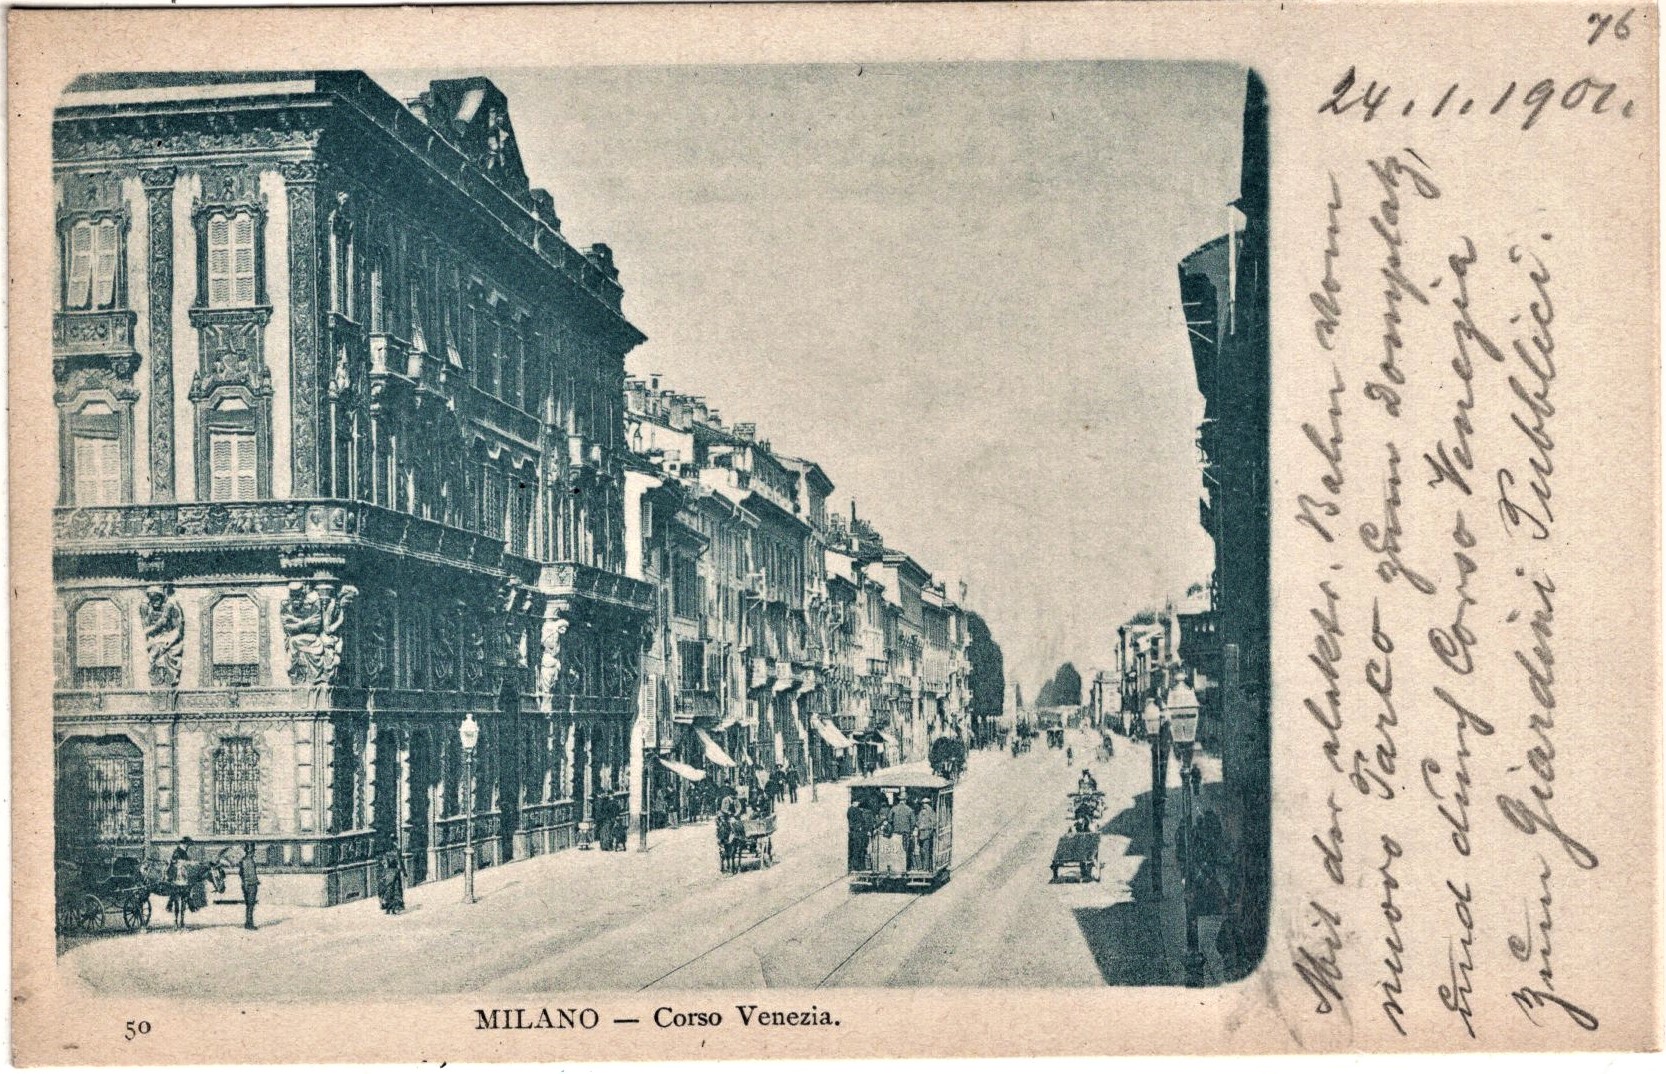 76
24.1.1901.
Mit der elektr. Bahn vom
nuovo Parco zum Domplatz,
und durch Corso Venezia
zum Giardini Pubblici.
50
MILANO — Corso Venezia.